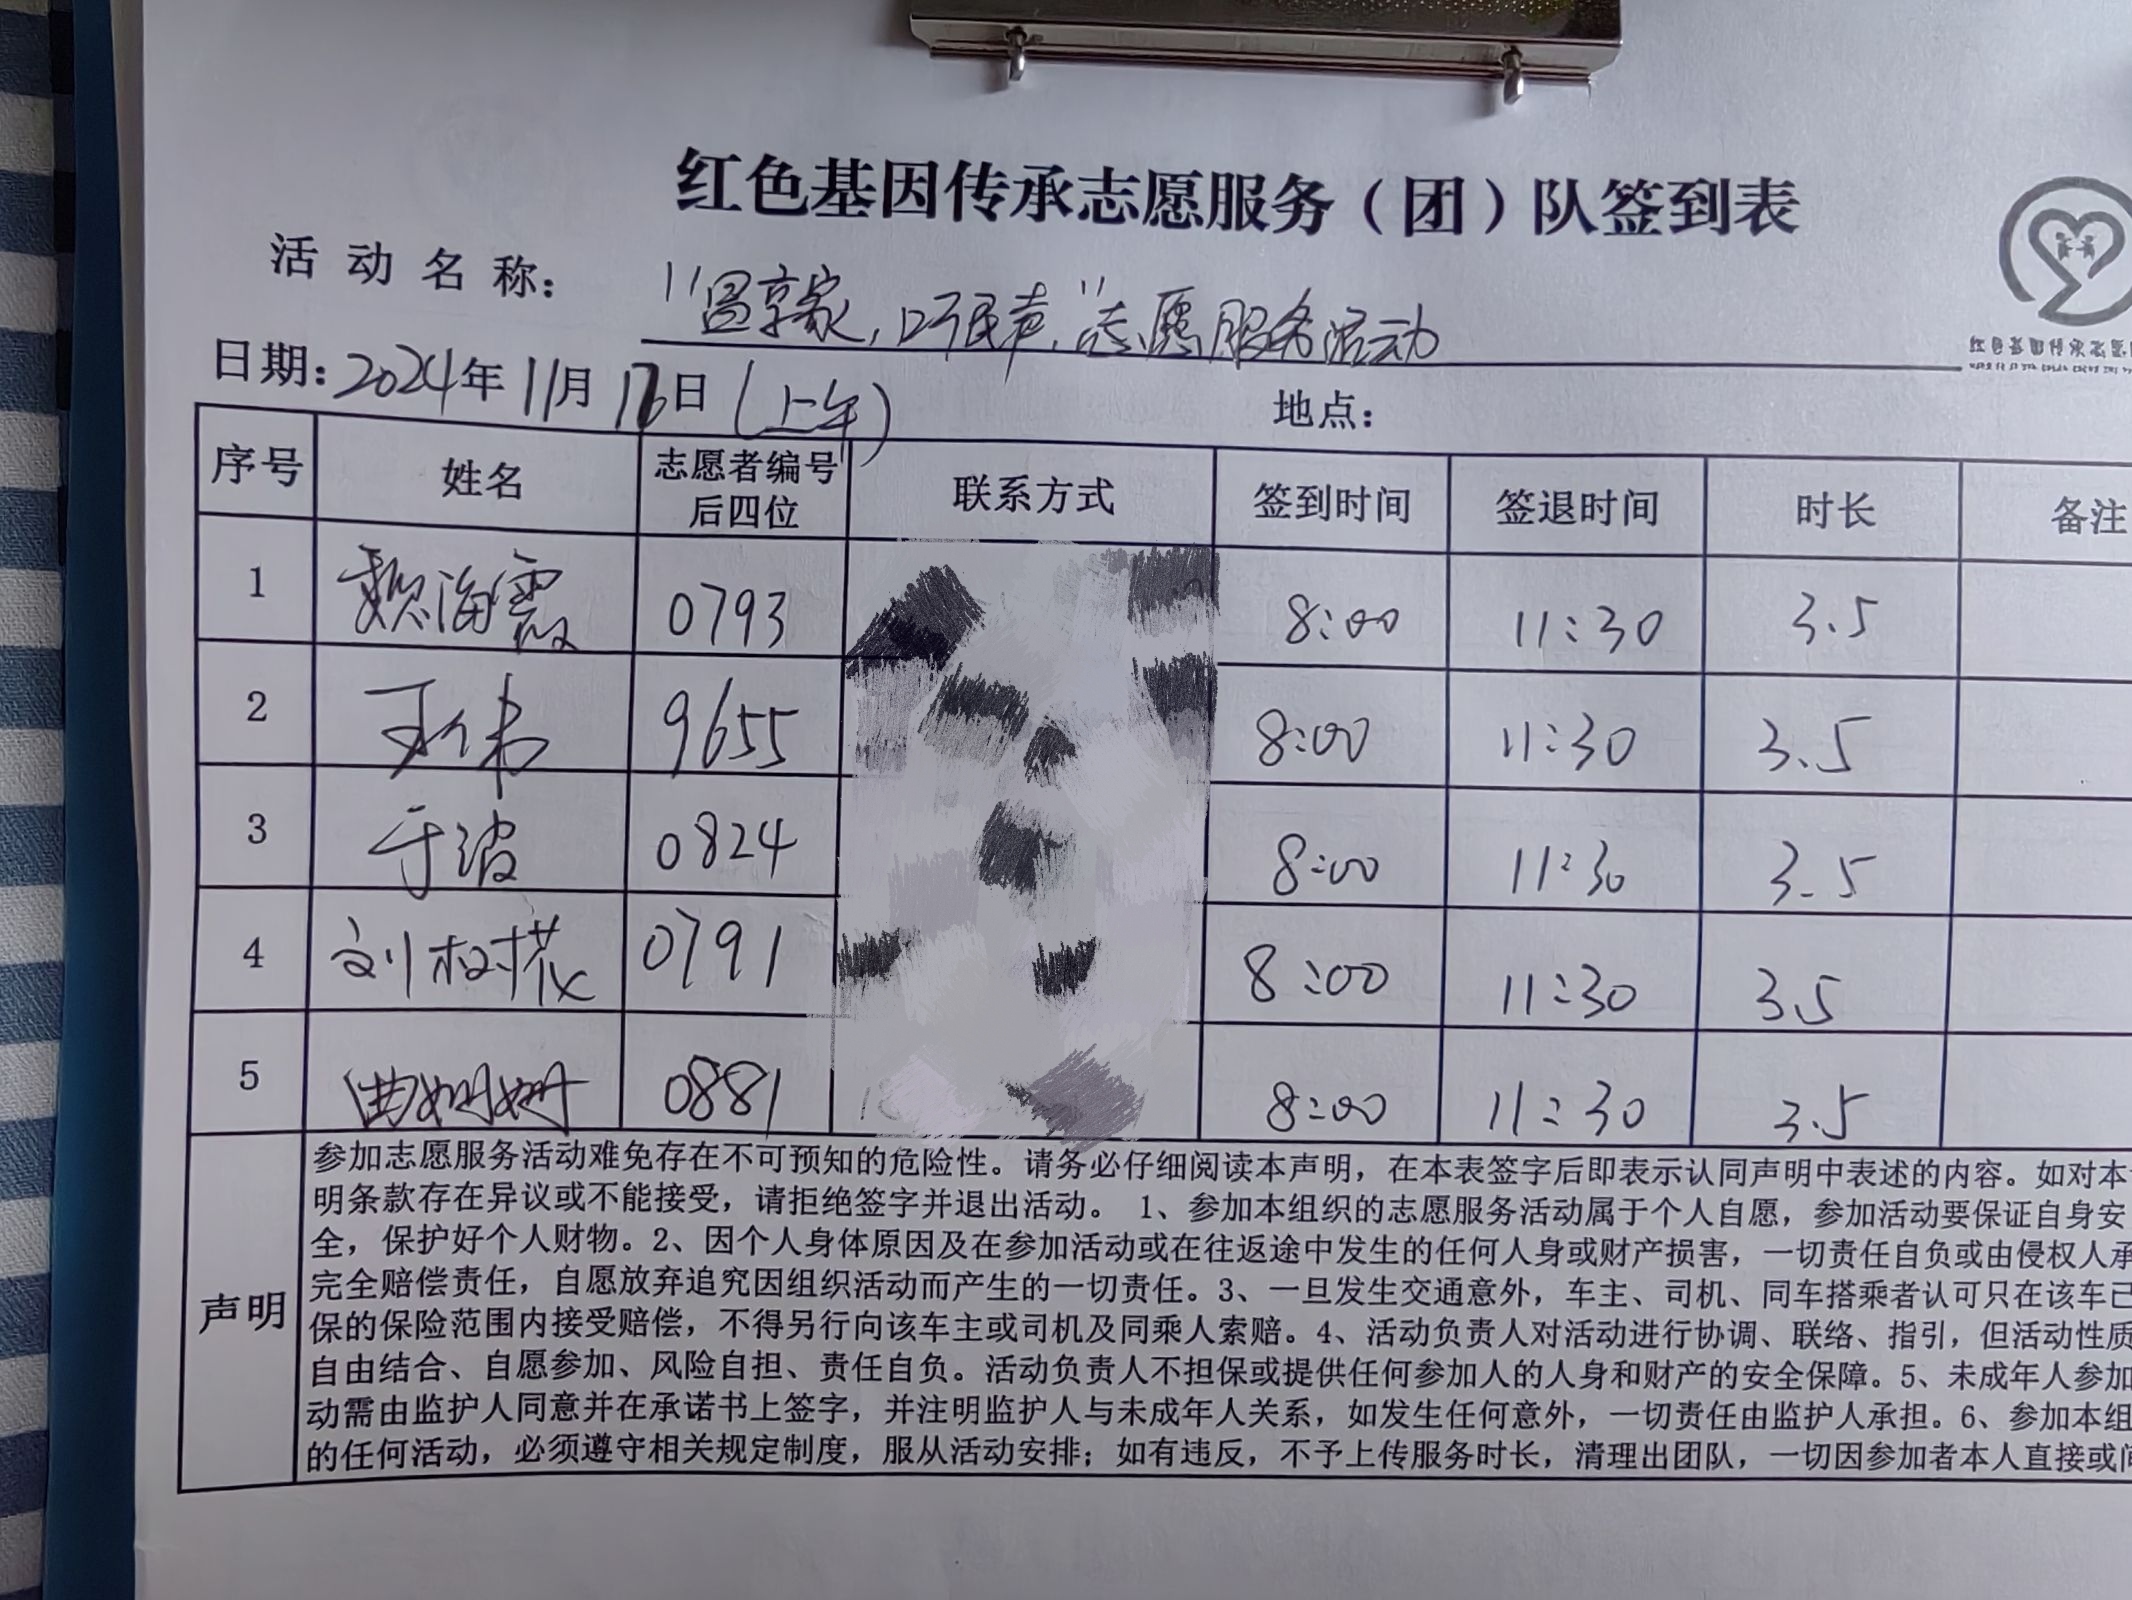 红色基因传承志愿服务（团）队签到表
活动名称： "温享家，听民声"志愿服务活动
日期：2024年11月 日（上午） 地点：
序号 姓名 志愿者编号后四位 联系方式 签到时间 签退时间 时长 备注
1 魏海霞 0793 8:00 11:30 3.5
2 王伟 9655 8:00 11:30 3.5
3 于波 0824 8:00 11:30 3.5
4 刘树花 0791 8:00 11:30 3.5
5 曲姗姗 0881 8:00 11:30 3.5
声明
参加志愿服务活动难免存在不可预知的危险性。请务必仔细阅读本声明，在本表签字后即表示认同声明中表述的内容。如对本
明条款存在异议或不能接受，请拒绝签字并退出活动。 1、参加本组织的志愿服务活动属于个人自愿，参加活动要保证自身安
全，保护好个人财物。2、因个人身体原因及在参加活动或在往返途中发生的任何人身或财产损害，一切责任自负或由侵权人承
完全赔偿责任，自愿放弃追究因组织活动而产生的一切责任。3、一旦发生交通意外，车主、司机、同车搭乘者认可只在该车已
保的保险范围内接受赔偿，不得另行向该车主或司机及同乘人索赔。4、活动负责人对活动进行协调、联络、指引，但活动性质
自由结合、自愿参加、风险自担、责任自负。活动负责人不担保或提供任何参加人的人身和财产的安全保障。5、未成年人参加
动需由监护人同意并在承诺书上签字，并注明监护人与未成年人关系，如发生任何意外，一切责任由监护人承担。6、参加本组
的任何活动，必须遵守相关规定制度，服从活动安排；如有违反，不予上传服务时长，清理出团队，一切因参加者本人直接或间